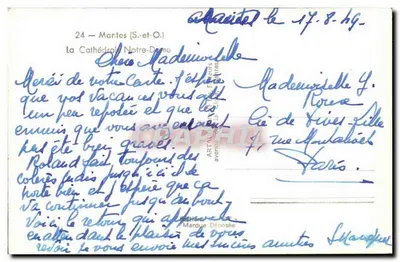 24 — Mantes (S.-et-O.)
La Cathédrale Notre-Dame
le 17-8-49.
Chère Mademoiselle
Merci de votre carte. J'espère
que vos vacances vous ont
un peu reposée et que les
ennuis que vous
pas été bien graves.
Roland fait toujours des
colères mais jusqu'ici il se
porte bien et j'espère que ça
va continuer jusqu'au bout.
Voici le retour qui approche
en attendant le plaisir de vous
revoir je vous envoie mes sincères amitiés
Mademoiselle Y.
Roux
Paris.
Marque Déposée